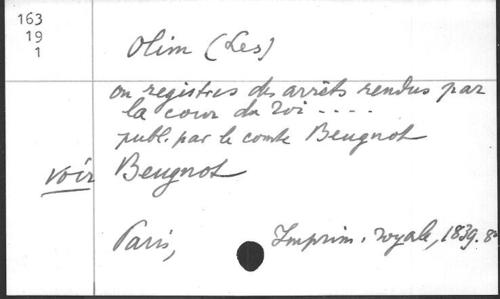 163
19
1
Olim (Les)
ou registres des arrêts rendus par
la cour du roi ....
publ. par le comte Beugnot
voir Beugnot
Paris, Imprim. royale, 1839. 8º